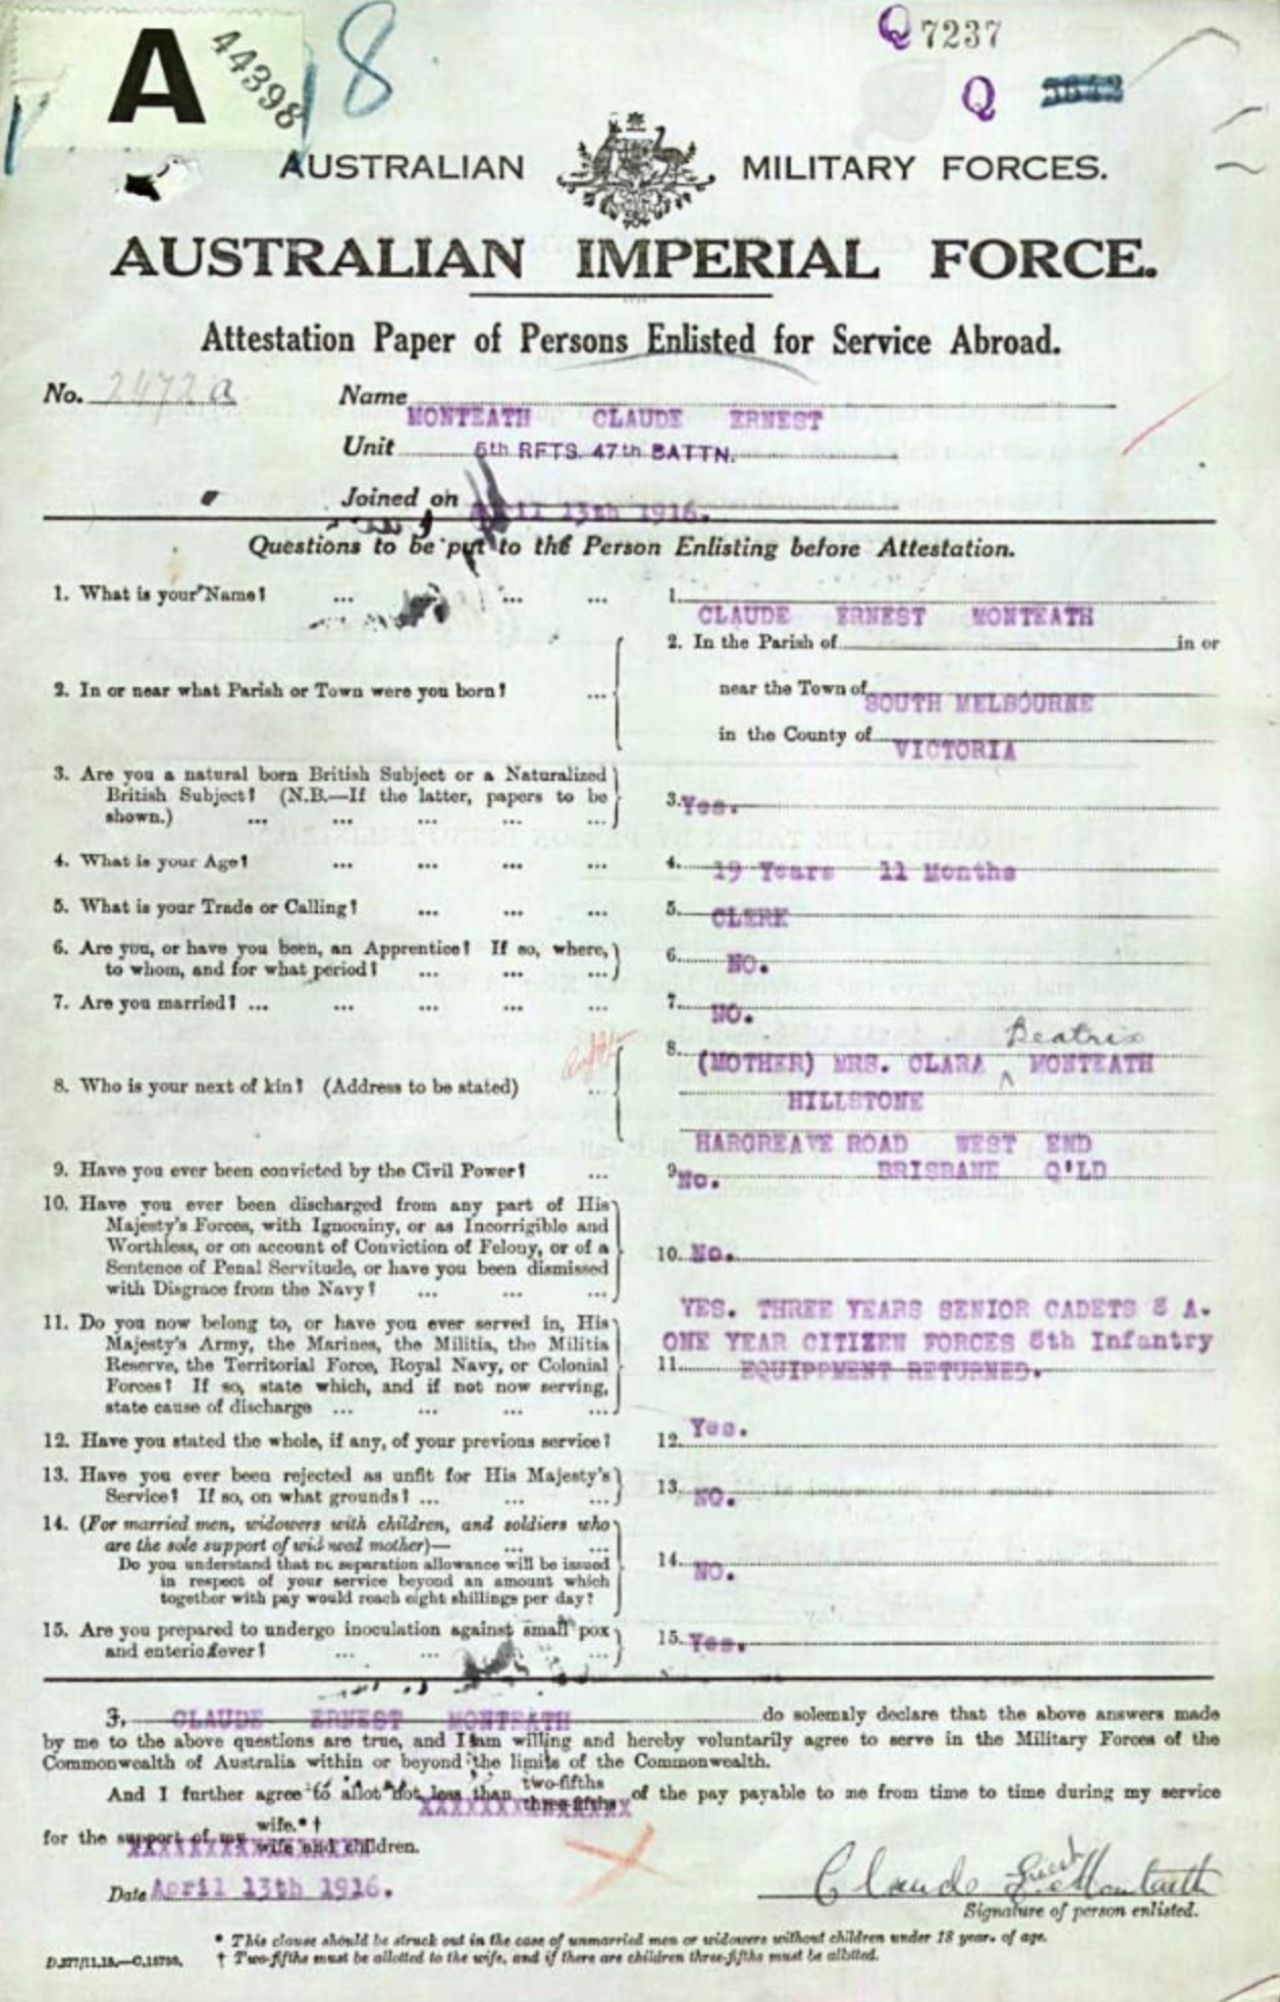 A 44398
18
Q 7237
Q
AUSTRALIAN MILITARY FORCES.
AUSTRALIAN IMPERIAL FORCE.
Attestation Paper of Persons Enlisted for Service Abroad.
No. 2472a Name MONTEATH CLAUDE ERNEST
Unit 5th RFTS. 47th BATTN.
Joined on April 13th 1916.
Questions to be put to the Person Enlisting before Attestation.
1. What is your Name? ... ... ... 1. CLAUDE ERNEST MONTEATH
2. In or near what Parish or Town were you born? ... 2. In the Parish of in or
near the Town of SOUTH MELBOURNE
in the County of VICTORIA
3. Are you a natural born British Subject or a Naturalized
British Subject? (N.B.—If the latter, papers to be
shown.) ... ... ... ... ... 3. Yes.
4. What is your Age? ... ... ... ... 4. 19 Years 11 Months
5. What is your Trade or Calling? ... ... ... 5. CLERK
6. Are you, or have you been, an Apprentice? If so, where,
to whom, and for what period? ... ... ... 6. NO.
7. Are you married? ... ... ... ... ... 7. NO.
8. Who is your next of kin? (Address to be stated) ... 8. (MOTHER) MRS. CLARA Beatrix MONTEATH
HILLSTONE
HARGREAVE ROAD WEST END
BRISBANE Q'LD
9. Have you ever been convicted by the Civil Power? ... 9. No.
10. Have you ever been discharged from any part of His
Majesty's Forces, with Ignominy, or as Incorrigible and
Worthless, or on account of Conviction of Felony, or of a
Sentence of Penal Servitude, or have you been dismissed
with Disgrace from the Navy? ... ... ... 10. No.
11. Do you now belong to, or have you ever served in, His
Majesty's Army, the Marines, the Militia, the Militia
Reserve, the Territorial Force, Royal Navy, or Colonial
Forces? If so, state which, and if not now serving,
state cause of discharge ... ... ... ...
YES. THREE YEARS SENIOR CADETS 8 A.
ONE YEAR CITIZEN FORCES 8th Infantry
11. EQUIPPMENT RETURNED.
12. Have you stated the whole, if any, of your previous service? 12. Yes.
13. Have you ever been rejected as unfit for His Majesty's
Service? If so, on what grounds? ... ... ... 13. NO.
14. (For married men, widowers with children, and soldiers who
are the sole support of widowed mother)— ... ...
Do you understand that no separation allowance will be issued
in respect of your service beyond an amount which
together with pay would reach eight shillings per day? 14. NO.
15. Are you prepared to undergo inoculation against small pox
and enteric fever? ... ... ... ... 15. Yes.
I, CLAUDE ERNEST MONTEATH do solemnly declare that the above answers made
by me to the above questions are true, and I am willing and hereby voluntarily agree to serve in the Military Forces of the
Commonwealth of Australia within or beyond the limits of the Commonwealth.
And I further agree to allot not less than two-fifths three-fifths of the pay payable to me from time to time during my service
for the support of my wife.* † wife and children.
Date April 13th 1916. Claude Ernest Monteath
Signature of person enlisted.
* This clause should be struck out in the case of unmarried men or widowers without children under 18 years of age.
† Two-fifths must be allotted to the wife, and if there are children three-fifths must be allotted.